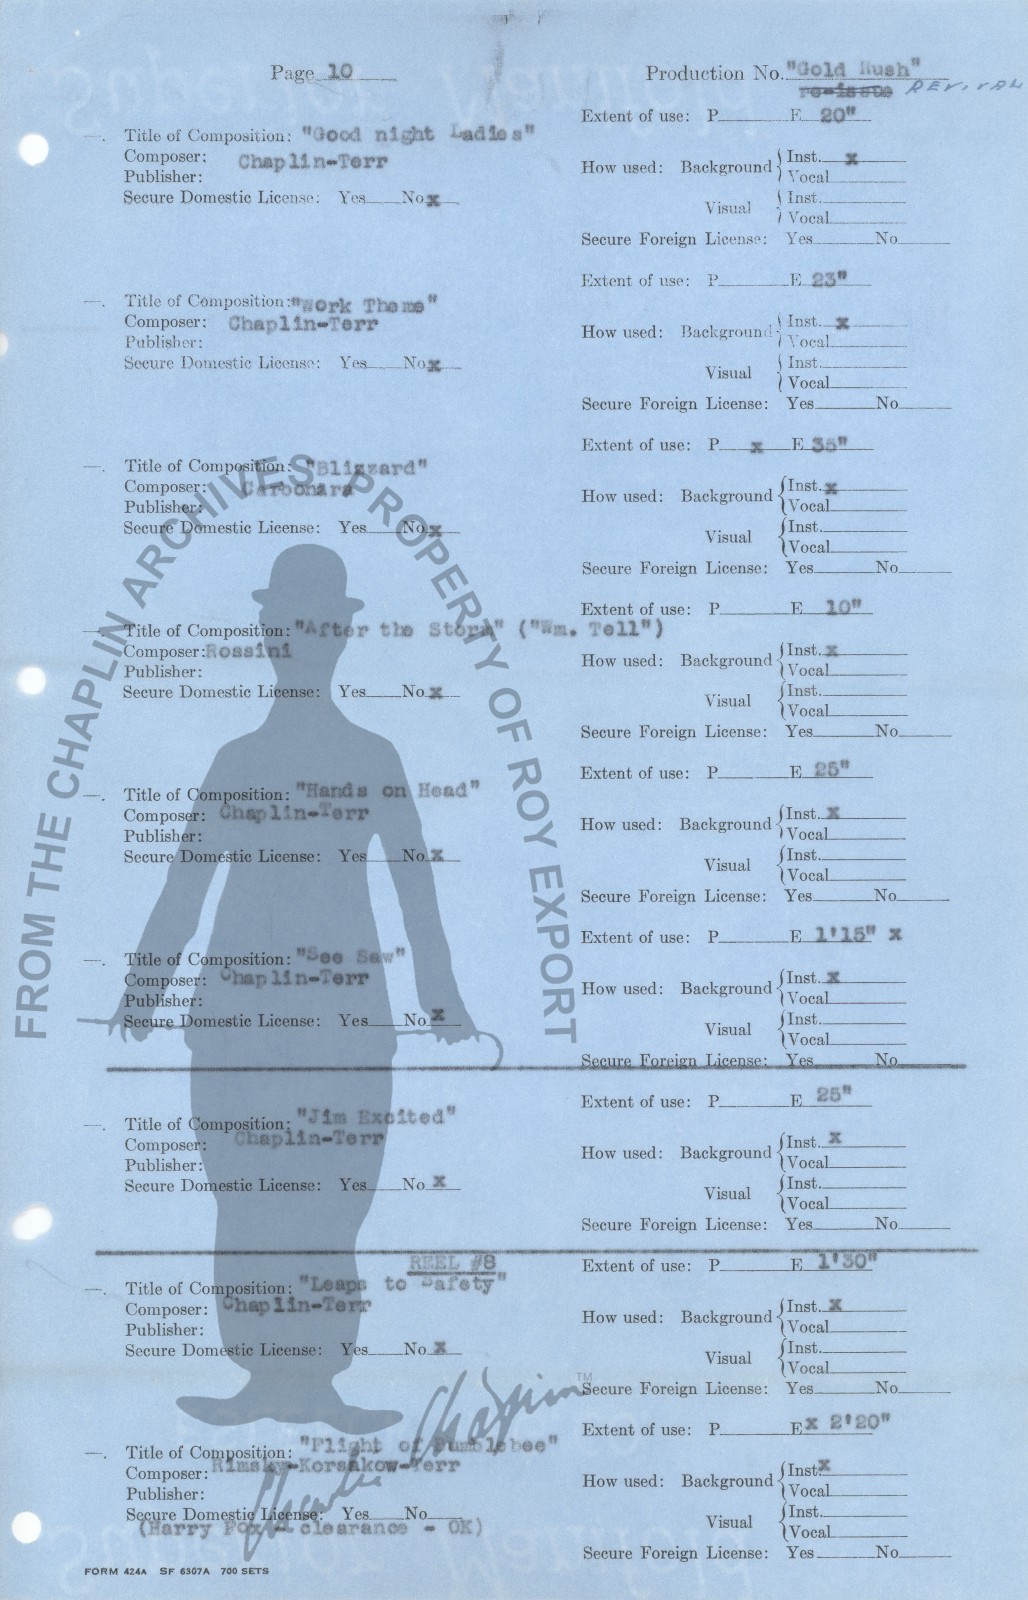 Page 10
Production No. "Gold Rush"
re-issue REVIVAL
Extent of use: P E 20"
—. Title of Composition: "Good night Ladies"
Composer: Chaplin-Terr
Publisher:
Secure Domestic License: Yes No x
How used: Background Inst. x
Vocal
Visual Inst.
Vocal
Secure Foreign License: Yes No
Extent of use: P E 23"
—. Title of Composition: "Work Theme"
Composer: Chaplin-Terr
Publisher:
Secure Domestic License: Yes No x
How used: Background Inst. x
Vocal
Visual Inst.
Vocal
Secure Foreign License: Yes No
Extent of use: P x E 35"
—. Title of Composition: "Blizzard"
Composer: Carbonara
Publisher:
Secure Domestic License: Yes No x
How used: Background Inst. x
Vocal
Visual Inst.
Vocal
Secure Foreign License: Yes No
Extent of use: P E 10"
—. Title of Composition: "After the Storm" ("Wm. Tell")
Composer: Rossini
Publisher:
Secure Domestic License: Yes No x
How used: Background Inst. x
Vocal
Visual Inst.
Vocal
Secure Foreign License: Yes No
Extent of use: P E 25"
—. Title of Composition: "Hands on Head"
Composer: Chaplin-Terr
Publisher:
Secure Domestic License: Yes No x
How used: Background Inst. x
Vocal
Visual Inst.
Vocal
Secure Foreign License: Yes No
Extent of use: P E 1'15" x
—. Title of Composition: "See Saw"
Composer: Chaplin-Terr
Publisher:
Secure Domestic License: Yes No x
How used: Background Inst. x
Vocal
Visual Inst.
Vocal
Secure Foreign License: Yes No
Extent of use: P E 25"
—. Title of Composition: "Jim Excited"
Composer: Chaplin-Terr
Publisher:
Secure Domestic License: Yes No x
How used: Background Inst. x
Vocal
Visual Inst.
Vocal
Secure Foreign License: Yes No
REEL #8
Extent of use: P E 1'30"
—. Title of Composition: "Leaps to Safety"
Composer: Chaplin-Terr
Publisher:
Secure Domestic License: Yes No x
How used: Background Inst. x
Vocal
Visual Inst.
Vocal
Secure Foreign License: Yes No
Extent of use: P E x 2'20"
—. Title of Composition: "Flight of Bumblebee"
Composer: Rimsky-Korsakow-Terr
Publisher:
Secure Domestic License: Yes No
(Harry Fox - clearance - OK)
How used: Background Inst. x
Vocal
Visual Inst.
Vocal
Secure Foreign License: Yes No
FORM 424A SF 6307A 700 SETS
FROM THE CHAPLIN ARCHIVES, PROPERTY OF ROY EXPORT
Charlie Chaplin TM